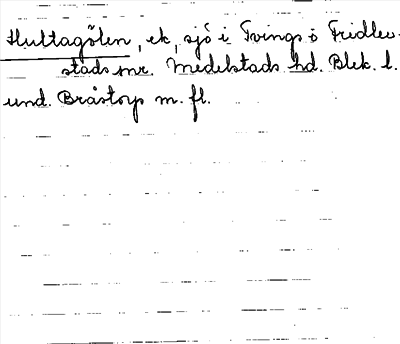 Hultagölen, ek, sjö i Tvings o Fridlev-
stads snr. Medelstads hd. Blek. l.
und. Bråstorp m. fl.